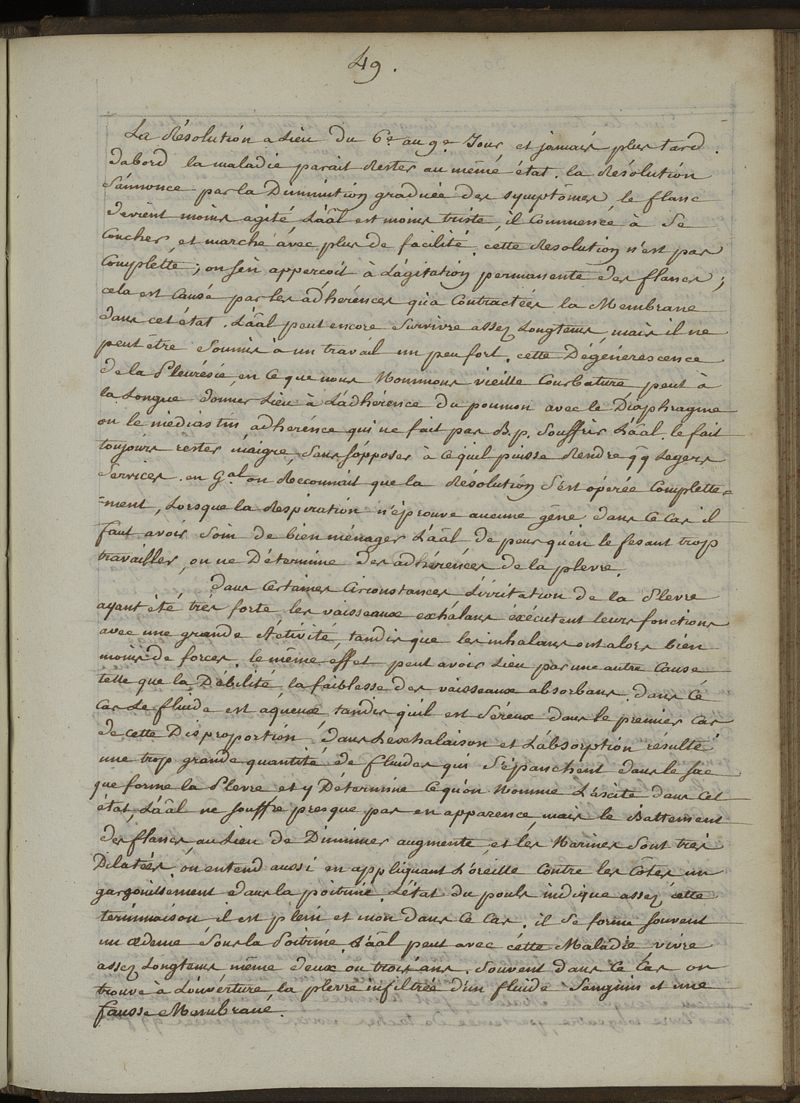 49.
La Résolution a Lieu du 6e au 9e Jour et jamais plus tard.
dabord la maladie parait Rester au même état. la Résolution
S'annonce par la Diminution graduée des symptômes, le flanc
devient moins agité L'aãl est moins triste, il Commence à Se
Coucher, et marche avec plus de facilité. cette Résolution n'est pas
Complette; on s'en appercoit à L'agitation permanente des flancs;
cela est Causé par les adhérences qu'a Contractées la Membrane
dans cet état. L'aãl peut encore Survivre assez Longtems, mais il ne
peut être Soumis à un travail un peu fort. cette Dégénérescence
de la Pleurésie, en Ce que nous Nommons vieille Courbature peut à
la Longue donner Lieu à L'adhérence du poumon avec le Diaphragme
ou le médiastin adherénce qui ne fait pas B.p. Souffrir L'aãl. le fait
toujours rester maigre, Sans s'opposer à Ce quil puisse Rendre qq Legers
Services. en Gal on Reconnait que la Résolution S'est opérée Complette=
=ment, Lorsque la Respiration n'éprouve aucune gêne. dans Ce Cas il
faut avoir Soin de bien ménager L'aãl de peur qu'en le fesant trop
travailler, on ne Détermine des adhérences de la plevre.
Dans Certaines Circonstances L'irritation de la Plevre
ayant été très forte les vaisseaux exhalans éxécutent leurs fonctions
avec une grande Activité, tandis que les inhalans ont alors bien
moins de forces. le même effet peut avoir Lieu par une autre Cause
telle que la Débilité, la faiblesse des vaisseaux absorbans. dans Ce
Cas Le fluide est aqueux tandis qu'il est Séreux dans le premier Cas
de cette Disproportion dans L'exhalaison et L'absorption résulte
une trop grande quantité de fluides qui S'épanchent dans le sac
que forme la Plevre et y Détermine Ce qu'on Nomme L'ascite dans Cet
état, L'aãl ne Souffre presque pas en apparence, mais le Battement
des flancs, au Lieu de Diminuer augmente, et les Narines Sont très
Dilatées, on entend aussi en appliquant L'oreille Contre les Côtes un
gargouillement dans la poitrine. L'état du pouls indique assez cette
terminaison il est plein et mou dans Ce Cas. il Se forme Souvent
un œdeme Sous la Poitrine. L'aãl peut avec cette Maladie vivre
assez Longtems même deux ou trois ans. Souvent dans Ce Cas on
trouve à L'ouverture la plevre infiltrée d'un fluide Sanguin et une
fausse Membrane.